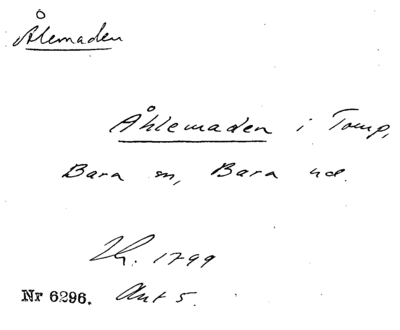 Ålemaden
Åhlemaden i Torup,
Bara sn, Bara hd.
Lh. 1799
Nr 6296. Akt 5.